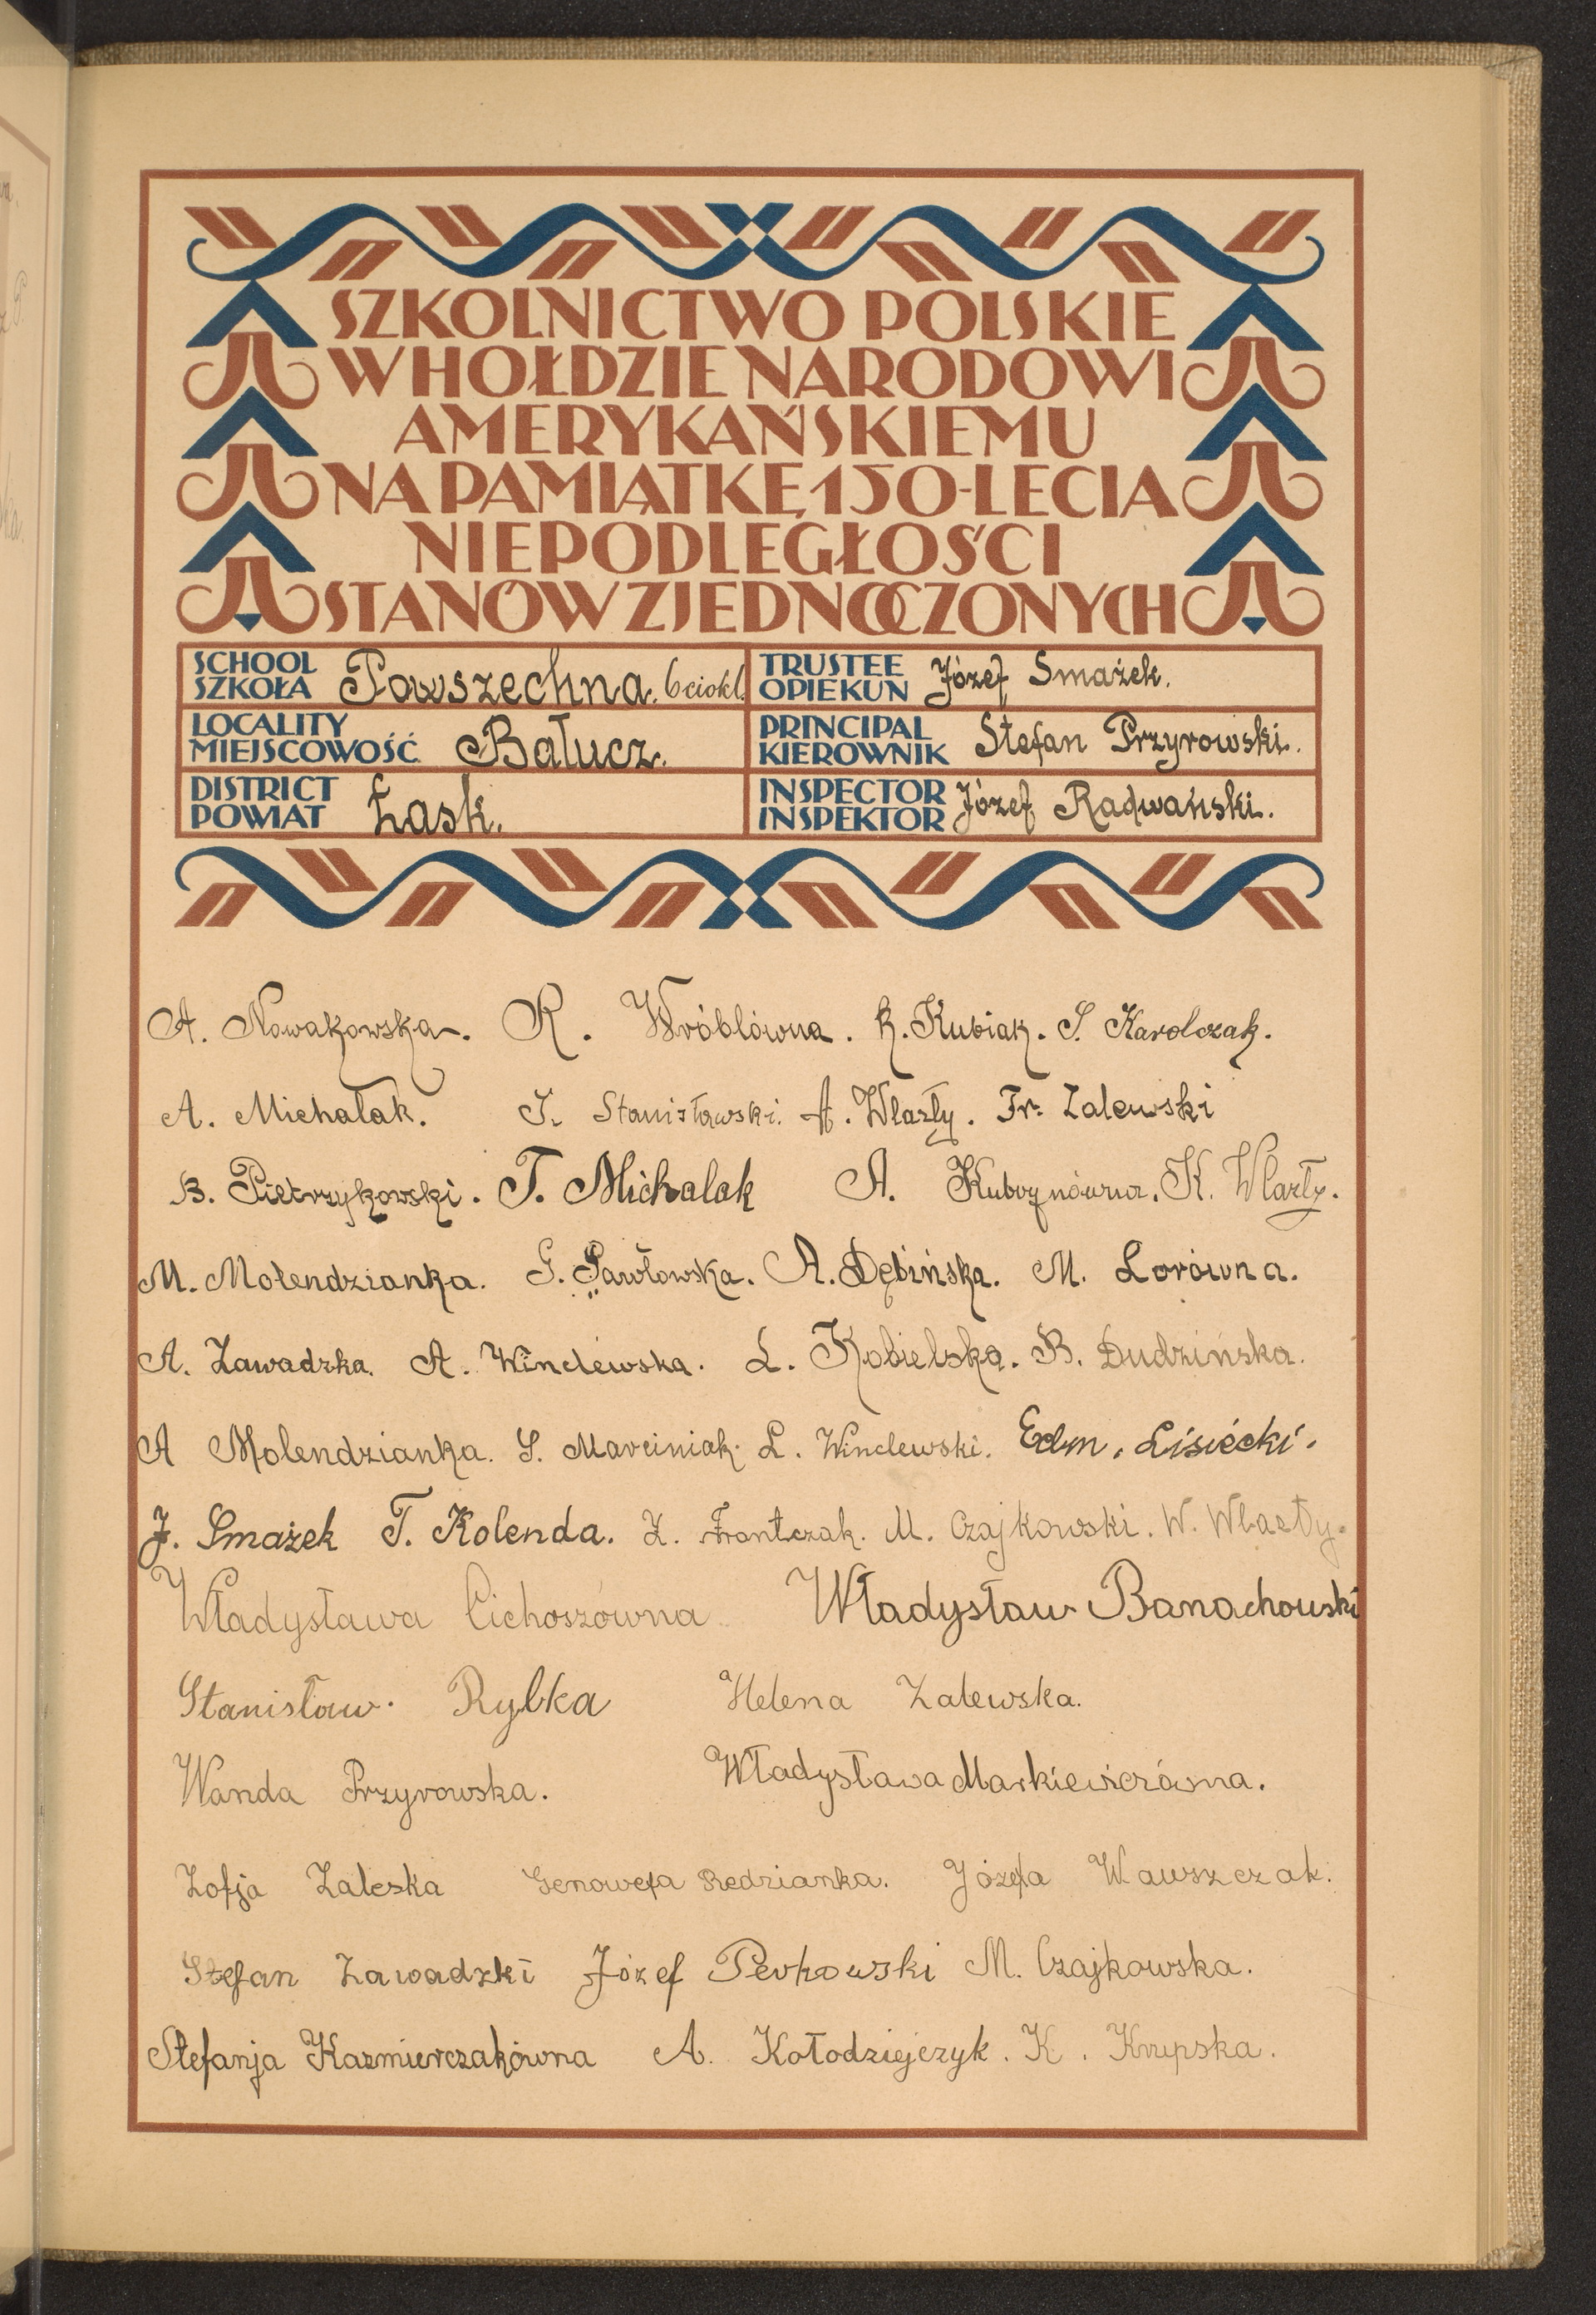 SZKOLNICTWO POLSKIE
W HOŁDZIE NARODOWI
AMERYKAŃSKIEMU
NA PAMIĄTKĘ 150-LECIA
NIEPODLEGŁOŚCI
STANÓW ZJEDNOCZONYCH
SCHOOL SZKOŁA Powszechna. 6ciokl.
TRUSTEE OPIEKUN Józef Smażek.
LOCALITY MIEJSCOWOŚĆ Bałucz.
PRINCIPAL KIEROWNIK Stefan Przyrowski.
DISTRICT POWIAT Łask.
INSPECTOR INSPEKTOR Józef Radwański.
A. Nowakowska. R. Wróblówna. K. Kubiak. S. Karolczak.
A. Michalak. Stanisławski. A. Wlazły. Fr. Zalewski
B. Pietrzykowski. T. Michalak A. K. Wlazły.
M. Molendzianka. G. Pawłowska. A. Dębińska. M. Lorówna.
A. Zawadzka. A. Winclewska. L. Kobielska. B. Dudzińska.
A Molendzianka. S. Marciniak. L. Winclewski. Edm. Lisiecki.
J. Smażek T. Kolenda. Z. Frontczak. M. Czajkowski. W. Wlazły.
Władysława Cichoszówna Władysław Banachowski
Stanisław. Rybka Helena Zalewska.
Wanda Przyrowska. Władysława Markiewiczówna.
Zofja Zaleska Genowefa Redzianka. Józefa Wawszczak.
Stefan Zawadzki Józef Perkowski M. Czajkowska.
Stefanja Kazmierczakówna A. Kołodziejczyk. K. Krupska.